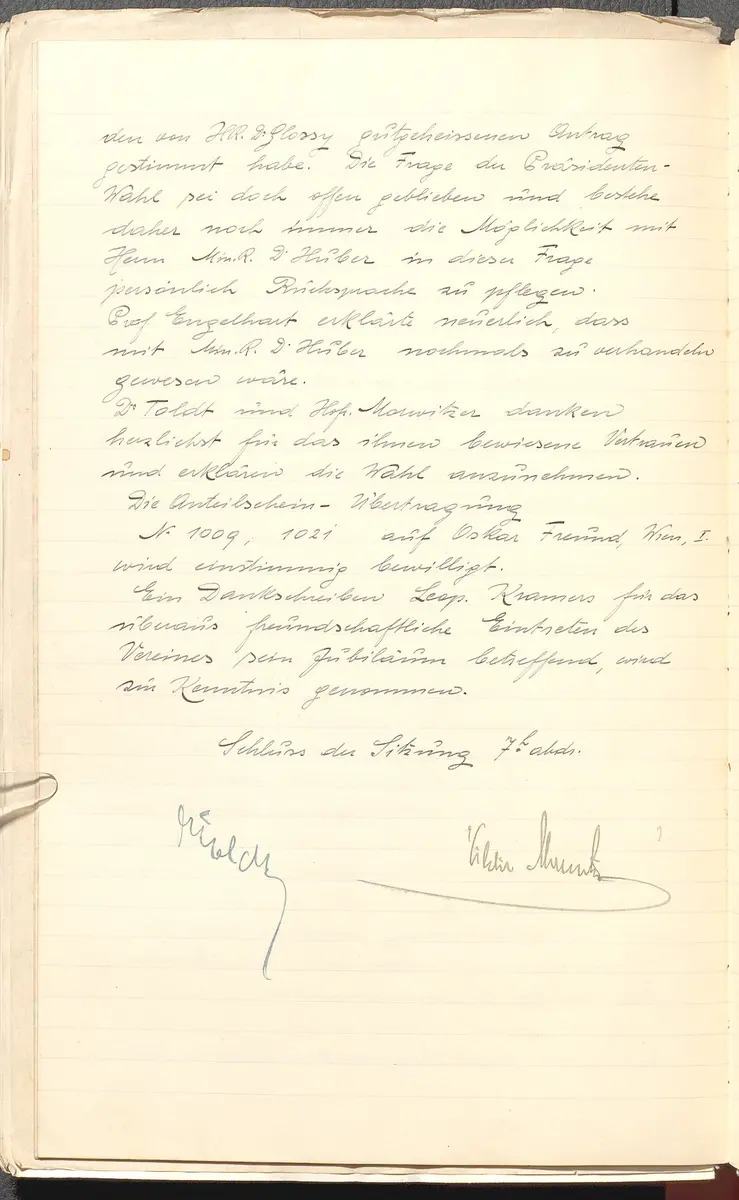 den von HR. Dr Glossy gutgeheissenen Antrag
gestimmt habe. Die Frage der Präsidenten-
Wahl sei doch offen geblieben und bestehe
daher noch immer die Möglichkeit mit
Herrn Min.R. Dr Huber in dieser Frage
persönlich Rücksprache zu pflegen.
Prof Engelhart erklärte neuerlich, dass
mit Min.R. Dr Huber nochmals zu verhandeln
gewesen wäre.
Dr Toldt und Hofr. Morwitzer danken
herzlichst für das ihnen bewiesene Vertrauen
und erklären die Wahl anzunehmen.
Die Anteilschein- Übertragung
Nr 1009, 1021 auf Oskar Freund, Wien, I.
wird einstimmig bewilligt.
Ein Dankschreiben Leop. Kramers für das
überaus freundschaftliche Eintreten des
Vereines sein Jubiläum betreffend, wird
zur Kenntnis genommen.
Schluss der Sitzung 7h abds.
Viktor